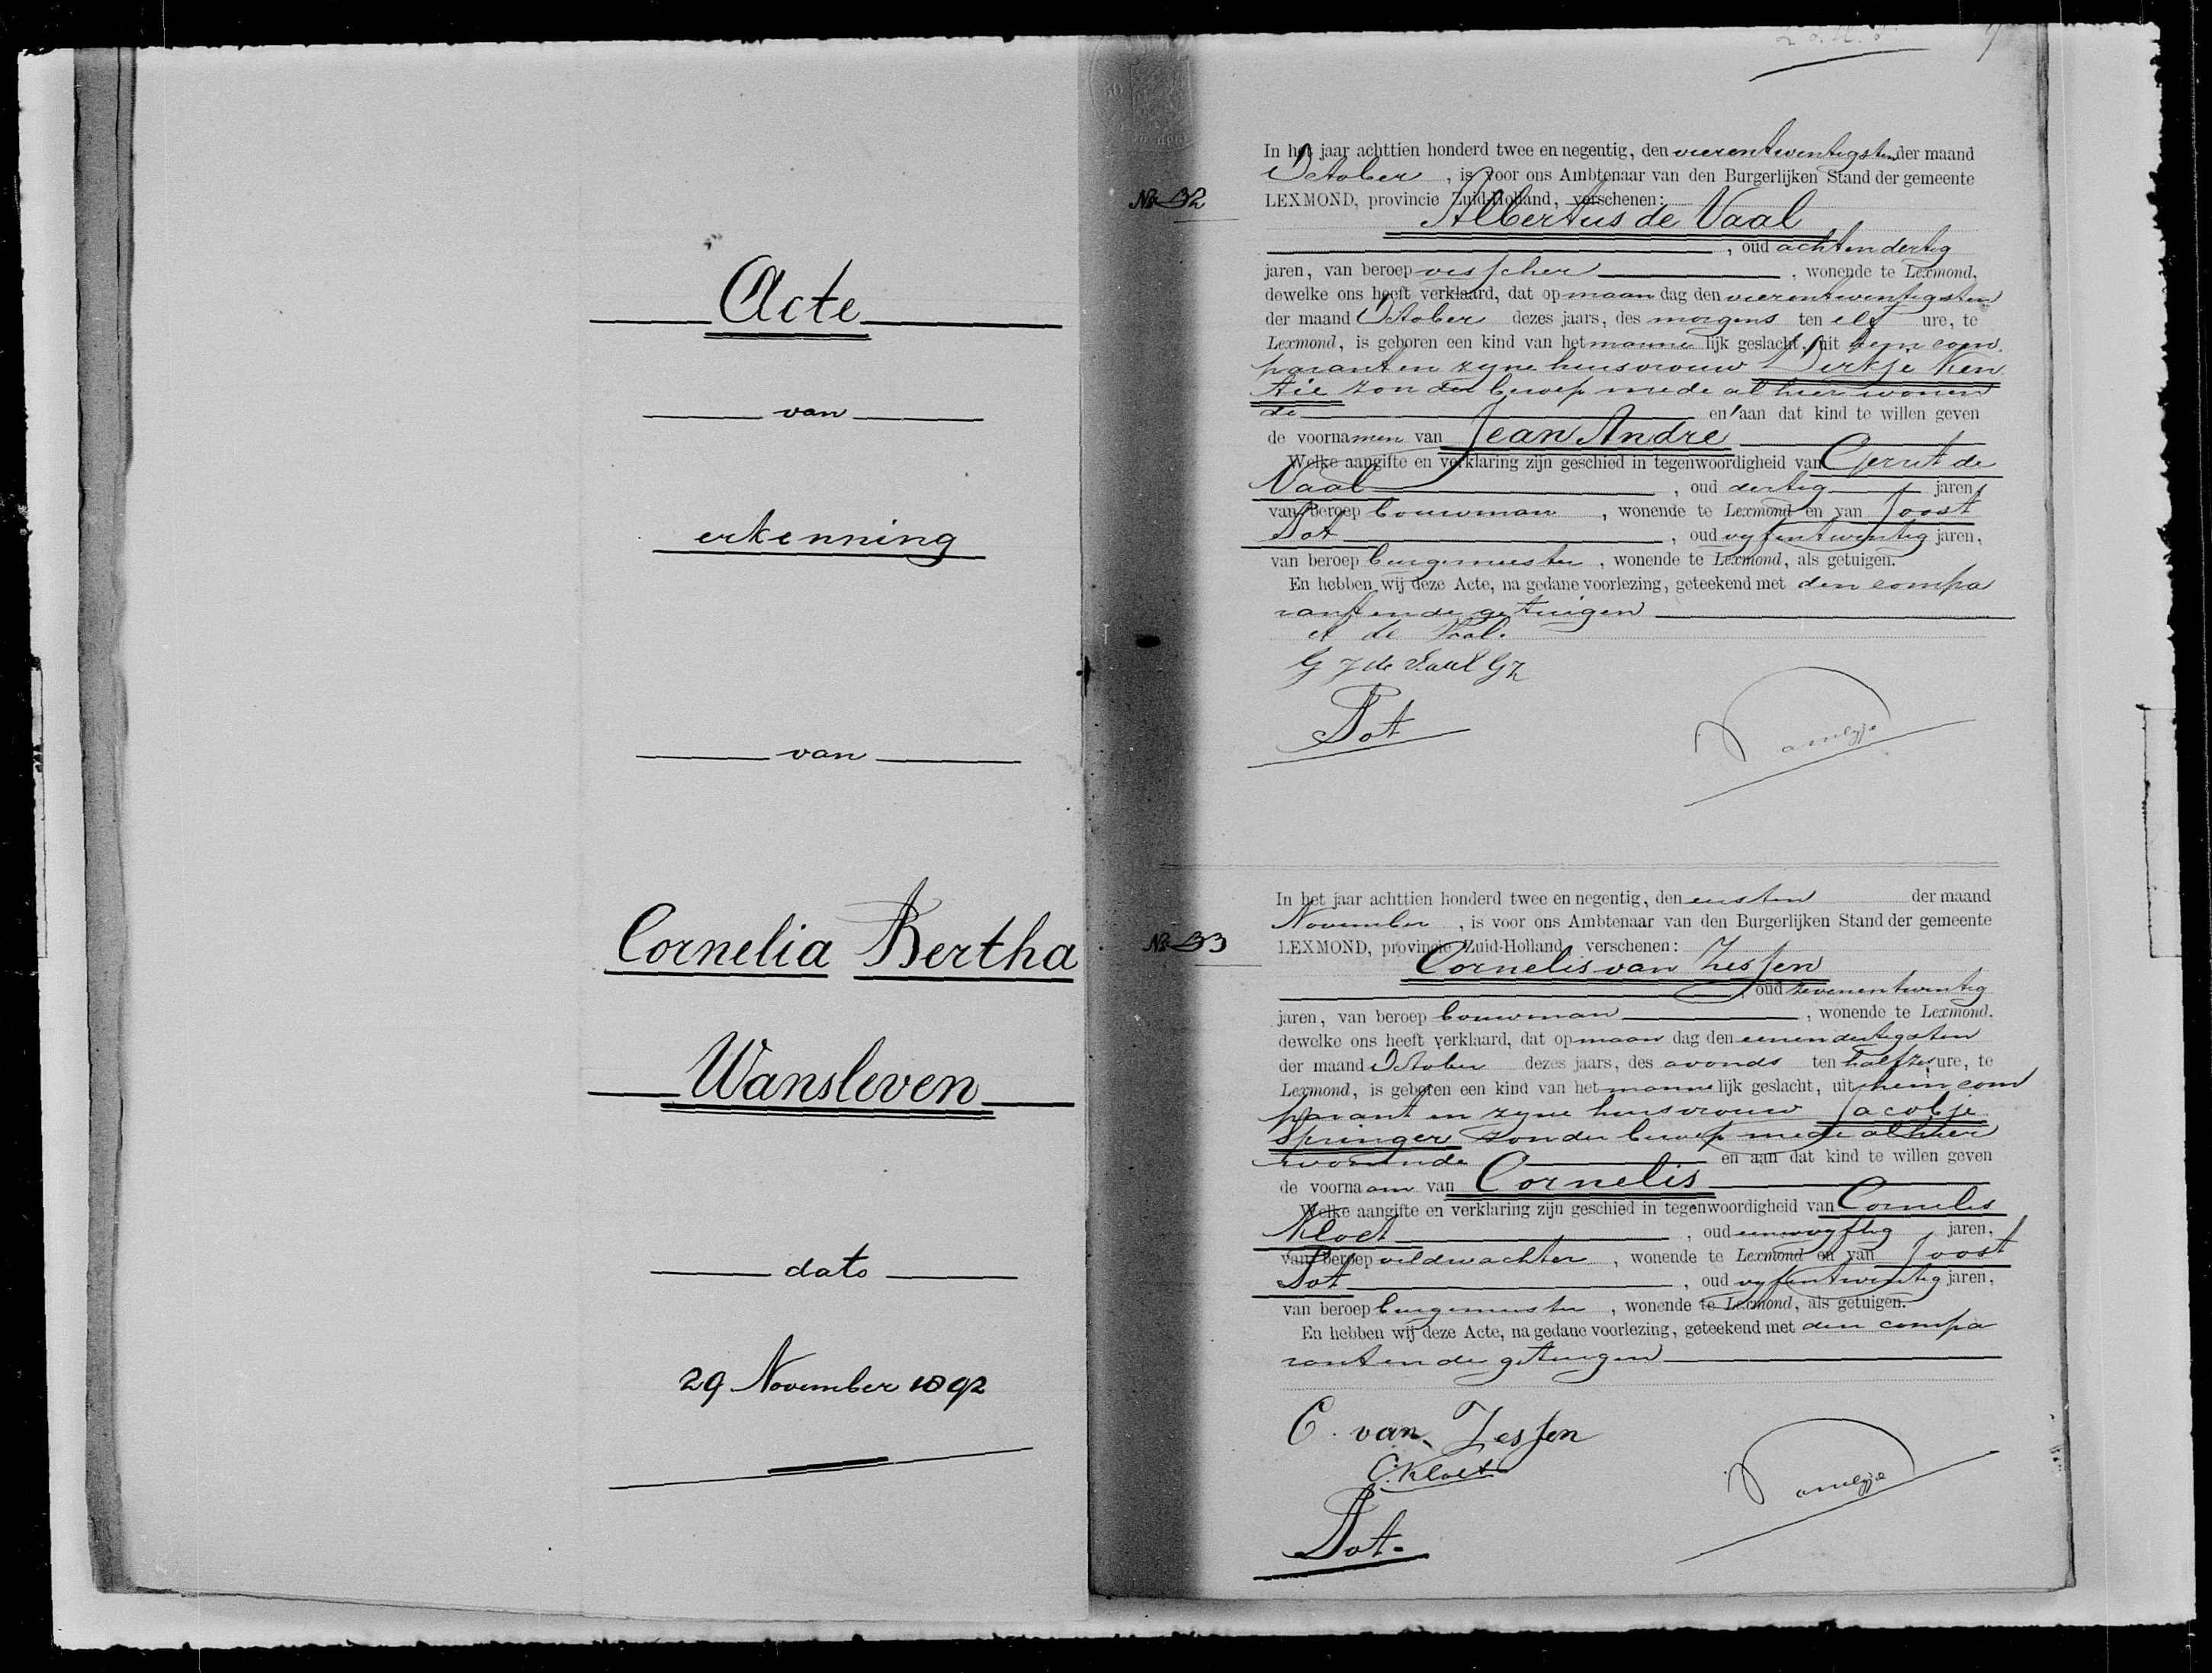 Acte
van
erkenning
van
Cornelia Bertha
Wansleven
dato
29 November 1892
In het jaar achttien honderd twee en negentig, den vierentwintigsten der maand
October, is voor ons Ambtenaar van den Burgerlijken Stand der gemeente
No 32 LEXMOND, provincie Zuid-Holland, verschenen:
Albertus de Vaal
, oud achtendertig
jaren, van beroep visscher, wonende te Lexmond,
dewelke ons heeft verklaard, dat op maandag den vierentwintigsten
der maand October dezes jaars, des morgens ten elf ure, te
Lexmond, is geboren een kind van het mannelijk geslacht, uit hem com
parant en zyne huisvrouw Dirkje Ken
tie zonder beroep mede alhier wonen
de en aan dat kind te willen geven
de voornamen van Jean Andre
Welke aangifte en verklaring zijn geschied in tegenwoordigheid van Gerrit de
Vaal, oud dertig jaren,
van beroep bouwman, wonende te Lexmond en van Joost
Pot, oud vyfentwintig jaren,
van beroep burgemeester, wonende te Lexmond, als getuigen.
En hebben wij deze Acte, na gedane voorlezing, geteekend met den compa
rant en de getuigen
A de Vaal.
G J de Vaal Gz
Pot
In het jaar achttien honderd twee en negentig, den eersten der maand
November, is voor ons Ambtenaar van den Burgerlijken Stand der gemeente
No 33 LEXMOND, provincie Zuid-Holland, verschenen:
Cornelis van Zessen
, oud zevenentwintig
jaren, van beroep bouwman, wonende te Lexmond,
dewelke ons heeft verklaard, dat op maandag den eenendertigsten
der maand October dezes jaars, des avonds ten half zes ure, te
Lexmond, is geboren een kind van het mannelijk geslacht, uit hem com
parant en zyne huisvrouw Jacobje
Springer zonder beroep mede alhier
wonende en aan dat kind te willen geven
de voornaam van Cornelis
Welke aangifte en verklaring zijn geschied in tegenwoordigheid van Cornelis
Kloet, oud eenenvyftig jaren,
van beroep veldwachter, wonende te Lexmond en van Joost
Pot, oud vyfentwintig jaren,
van beroep burgemeester, wonende te Lexmond, als getuigen.
En hebben wij deze Acte, na gedane voorlezing, geteekend met den compa
rant en de getuigen
C. van Zessen
C. Kloet
Pot.